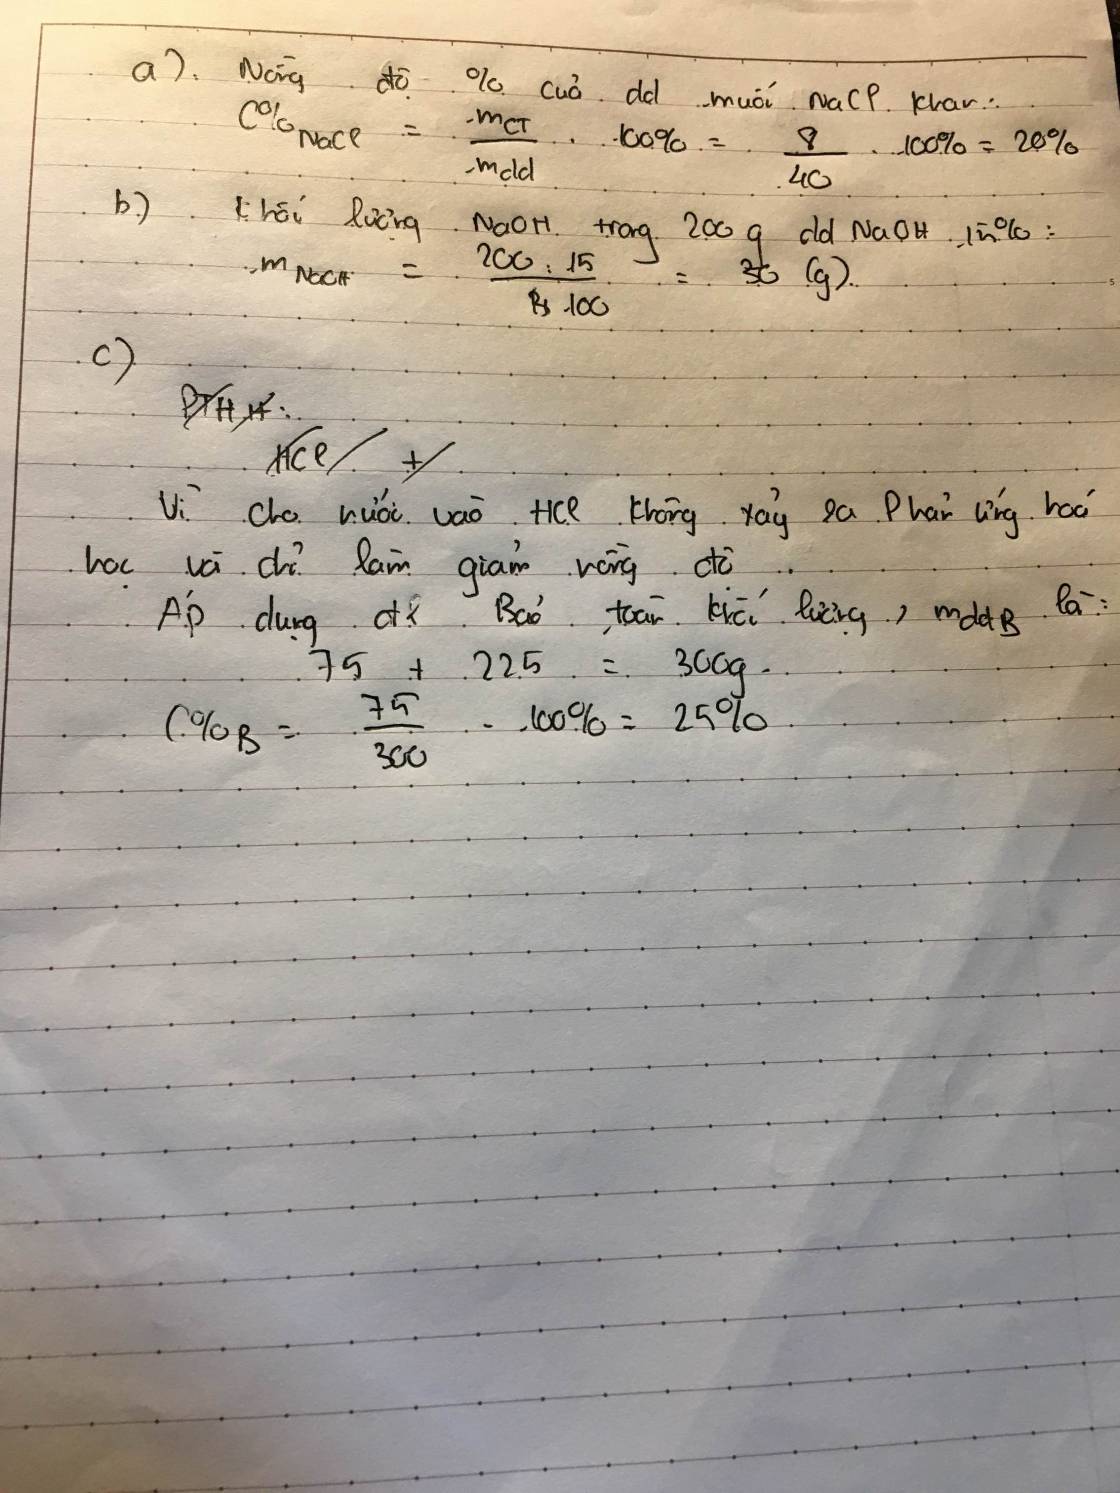 a). Nồng độ % của dd muối NaCl khan:
C%NaCl = mCT / mdd . 100% = 8 / 40 . 100% = 20%
b) Khối lượng NaOH trong 200 g dd NaOH 15% :
mNaOH = 200 . 15 / 100 = 30 (g).
c)
PTHH:
HCl +
Vì cho nước vào HCl không xảy ra Phản ứng hoá
học và chỉ làm giảm nồng độ ..
Áp dụng Bảo toàn khối lượng, mddB là:
75 + 225 = 300g.
C%B = 75 / 300 . 100% = 25%